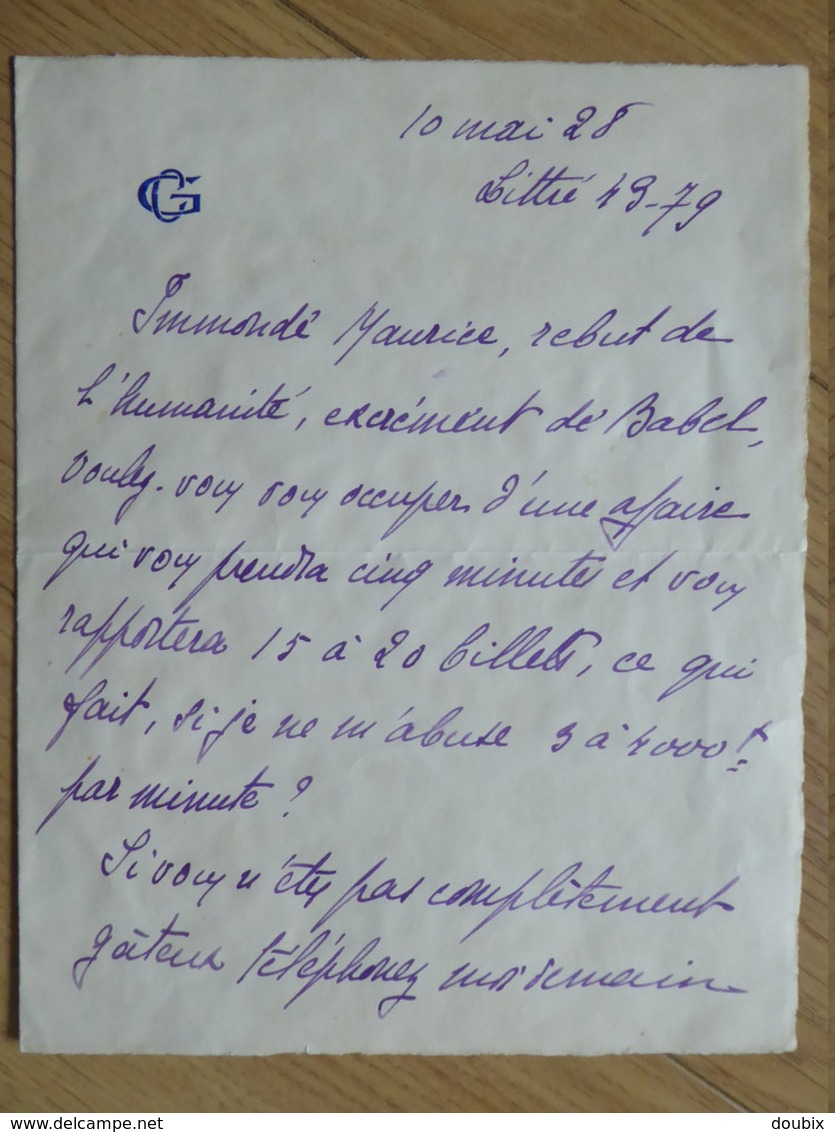 10 mai 28
Littré 43-79
CG
Immonde Maurice, rebut de
l'humanité, excrément de Babel,
voulez-vous vous occuper d'une affaire
qui vous prendra cinq minutes et vous
rapportera 15 à 20 billets, ce qui
fait, si je ne m'abuse 3 à 4000 f
par minute ?
Si vous n'êtes pas complètement
gâteux téléphonez moi demain
delcampe.net
doubix